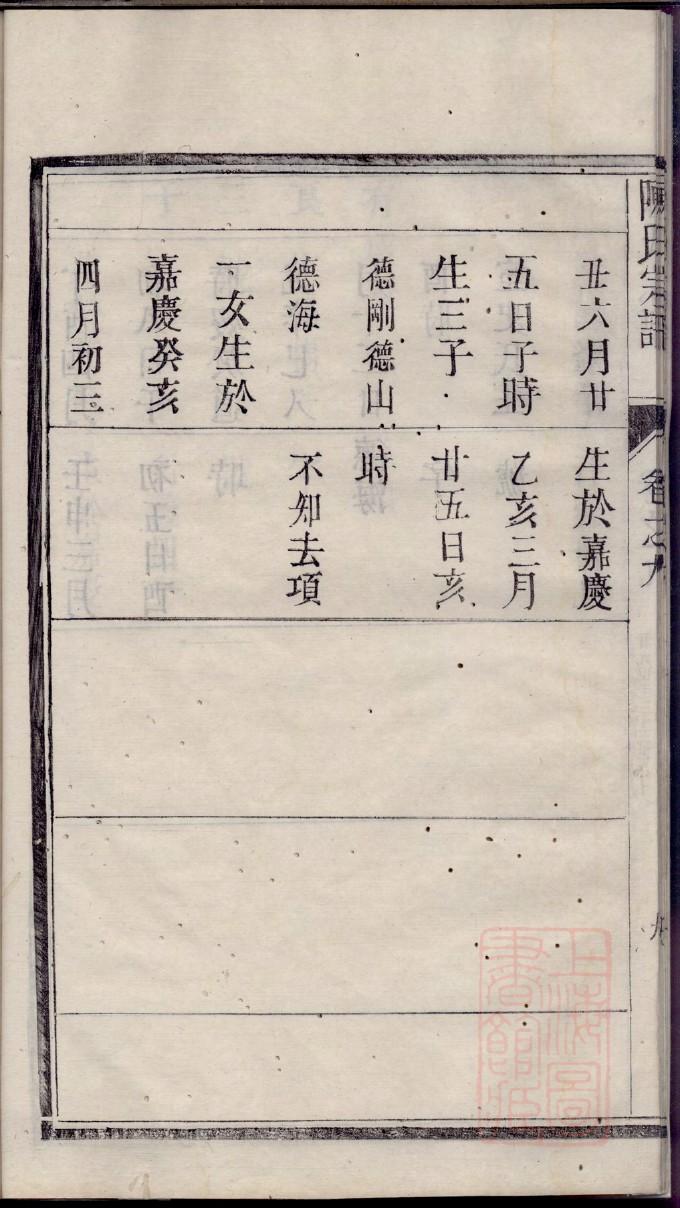 陳氏宗譜
卷之九
九
丑六月廿
五日子時
生三子
德剛德山
德海
一女生於
嘉慶癸亥
四月初三
生於嘉慶
乙亥三月
廿五日亥
時
不知去項
上海圖
書館藏